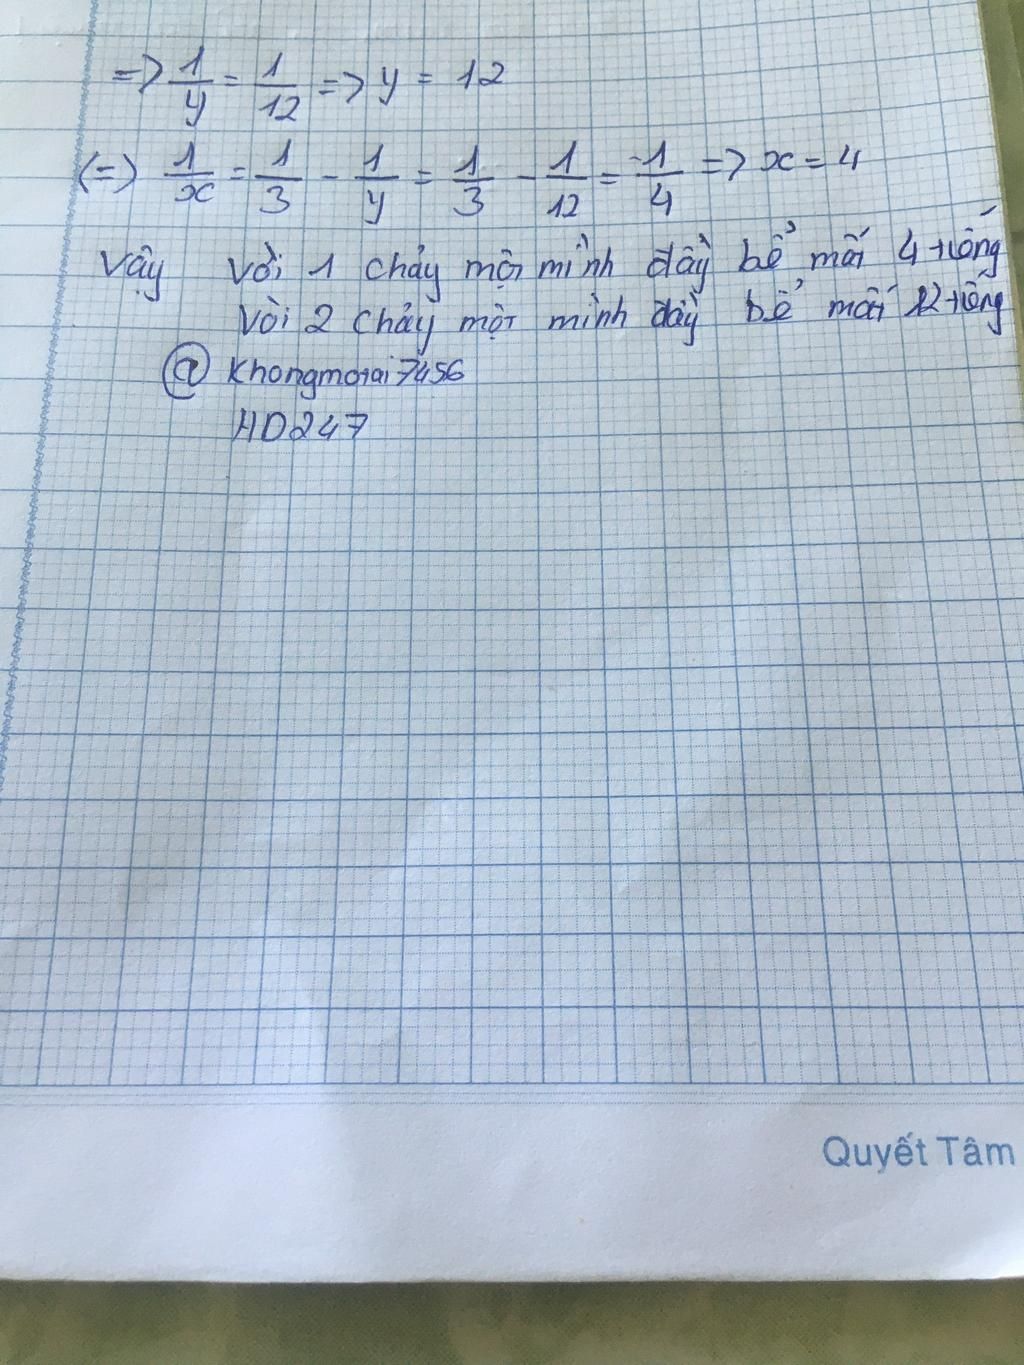 => 1/y = 1/12 => y = 12
(=) 1/x = 1/3 - 1/y = 1/3 - 1/12 = 1/4 => x = 4
Vậy vòi 1 chảy một mình đầy bể mất 4 tiếng
Vòi 2 chảy một mình đầy bể mất 12 tiếng
@ Khongmotai7456
HD247
Quyết Tâm